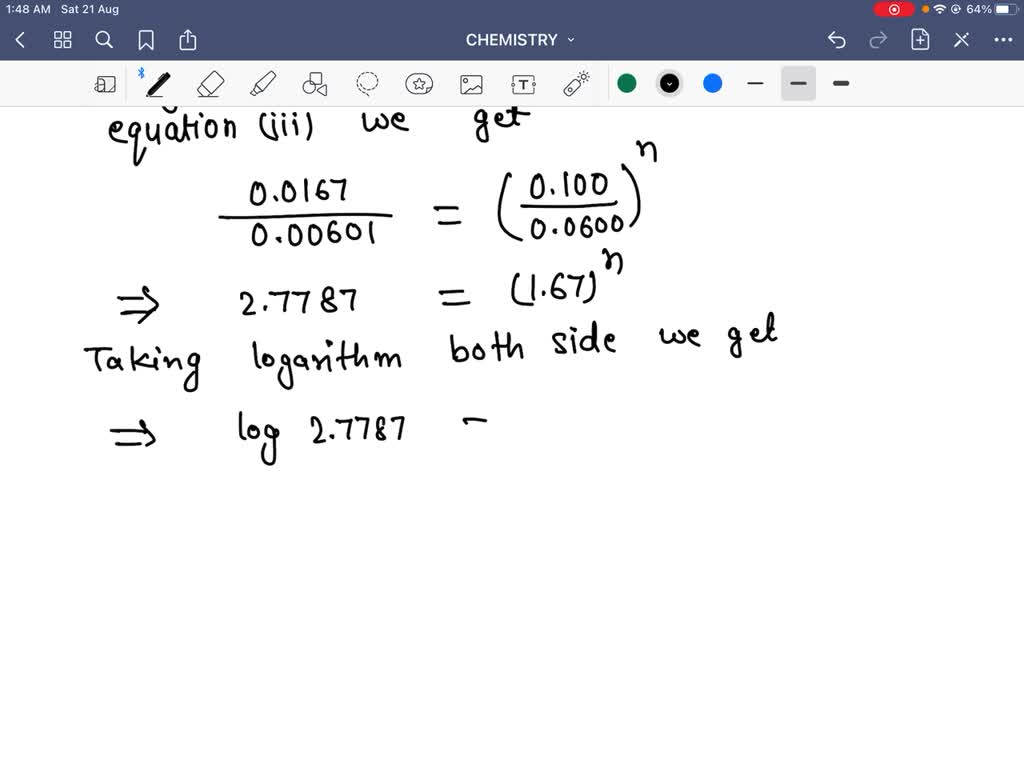 1:48 AM Sat 21 Aug 64%
CHEMISTRY
T
equation (iii) we get
0.0167 / 0.00601 = (0.100 / 0.0600)^n
⇒ 2.7787 = (1.67)^n
Taking logarithm both side we get
⇒ log 2.7787 -